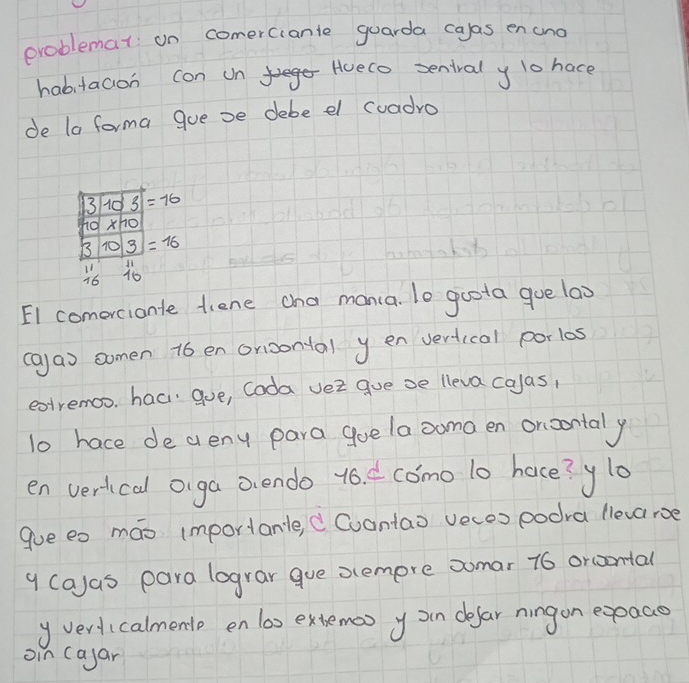 problema1: un comerciante guarda cajas en una
habitación con un juego Hueco sentral y lo hace
de la forma que se debe el cuadro
3 10 3 = 16
10 x 10
3 10 3 = 16
" "
16 16
El comerciante tiene una mania. lo gusta que las
cajas sumen 16 en orisontal y en vertical por los
estremos. haci que, cada vez que se lleva cajas,
lo hace de y para que la suma en orisontal y
en vertical siga siendo 16. ¿ cómo lo hace? y lo
que es más importante, ¿ Cuantas veces podra llevarse
4 cajas para lograr que siempre sumar 16 orisontal
y verticalmente en los extemos y sin dejar ningun espacio
sin cajar